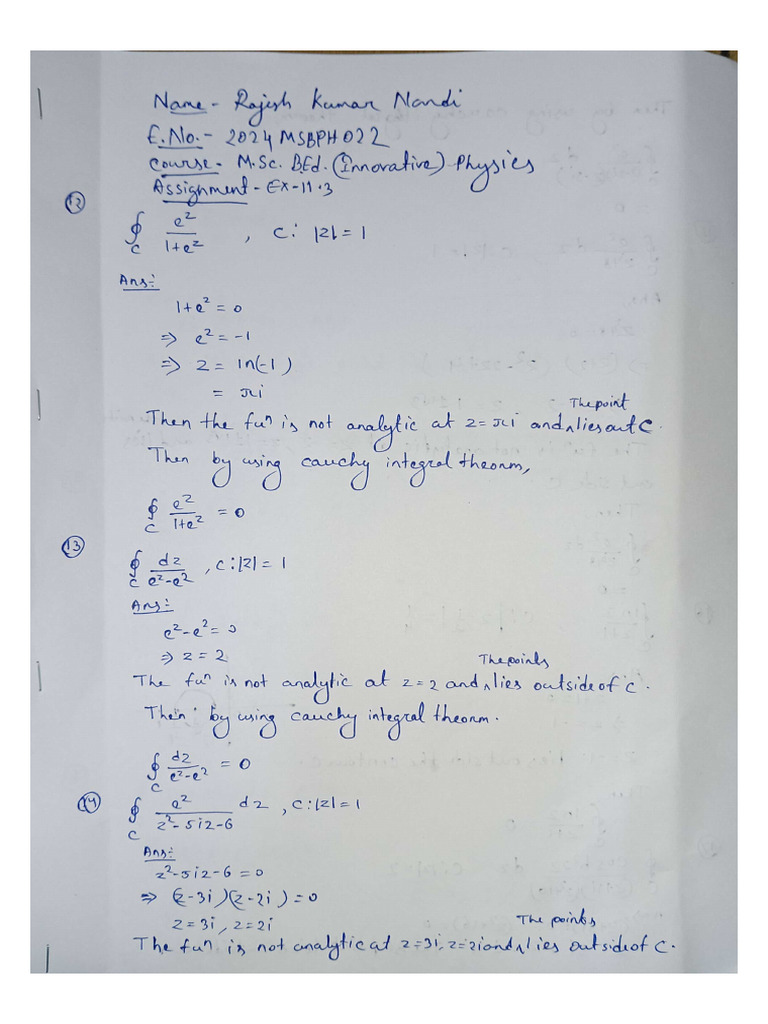 Name - Rajesh Kumar Nandi
E.No. - 2024MSBPH022
Course - M.Sc. B.Ed. (Innovative) Physics
Assignment - Ex-11.3
(12) ∮_C e^z/(1+e^z) , C: |z| = 1
Ans:-
1+e^z = 0
⇒ e^z = -1
⇒ z = ln(-1)
= πi
Then the fuⁿ is not analytic at z = πi and The point lies out C.
Then by using cauchy integral theorm,
∮_C e^z/(1+e^z) = 0
(13) ∮_C dz/(e^z-e^2) , C: |z| = 1
Ans:-
e^z - e^2 = 0
⇒ z = 2
The fuⁿ is not analytic at z = 2 and The points lies outside of C.
Then by using cauchy integral theorm.
∮_C dz/(e^z-e^2) = 0
(14) ∮_C e^z/(z^2-5iz-6) dz , C: |z| = 1
Ans:-
z^2-5iz-6 = 0
⇒ (z-3i)(z-2i) = 0
z = 3i, z = 2i
The fuⁿ is not analytic at z=3i, z=2i and The points lies outside of C.